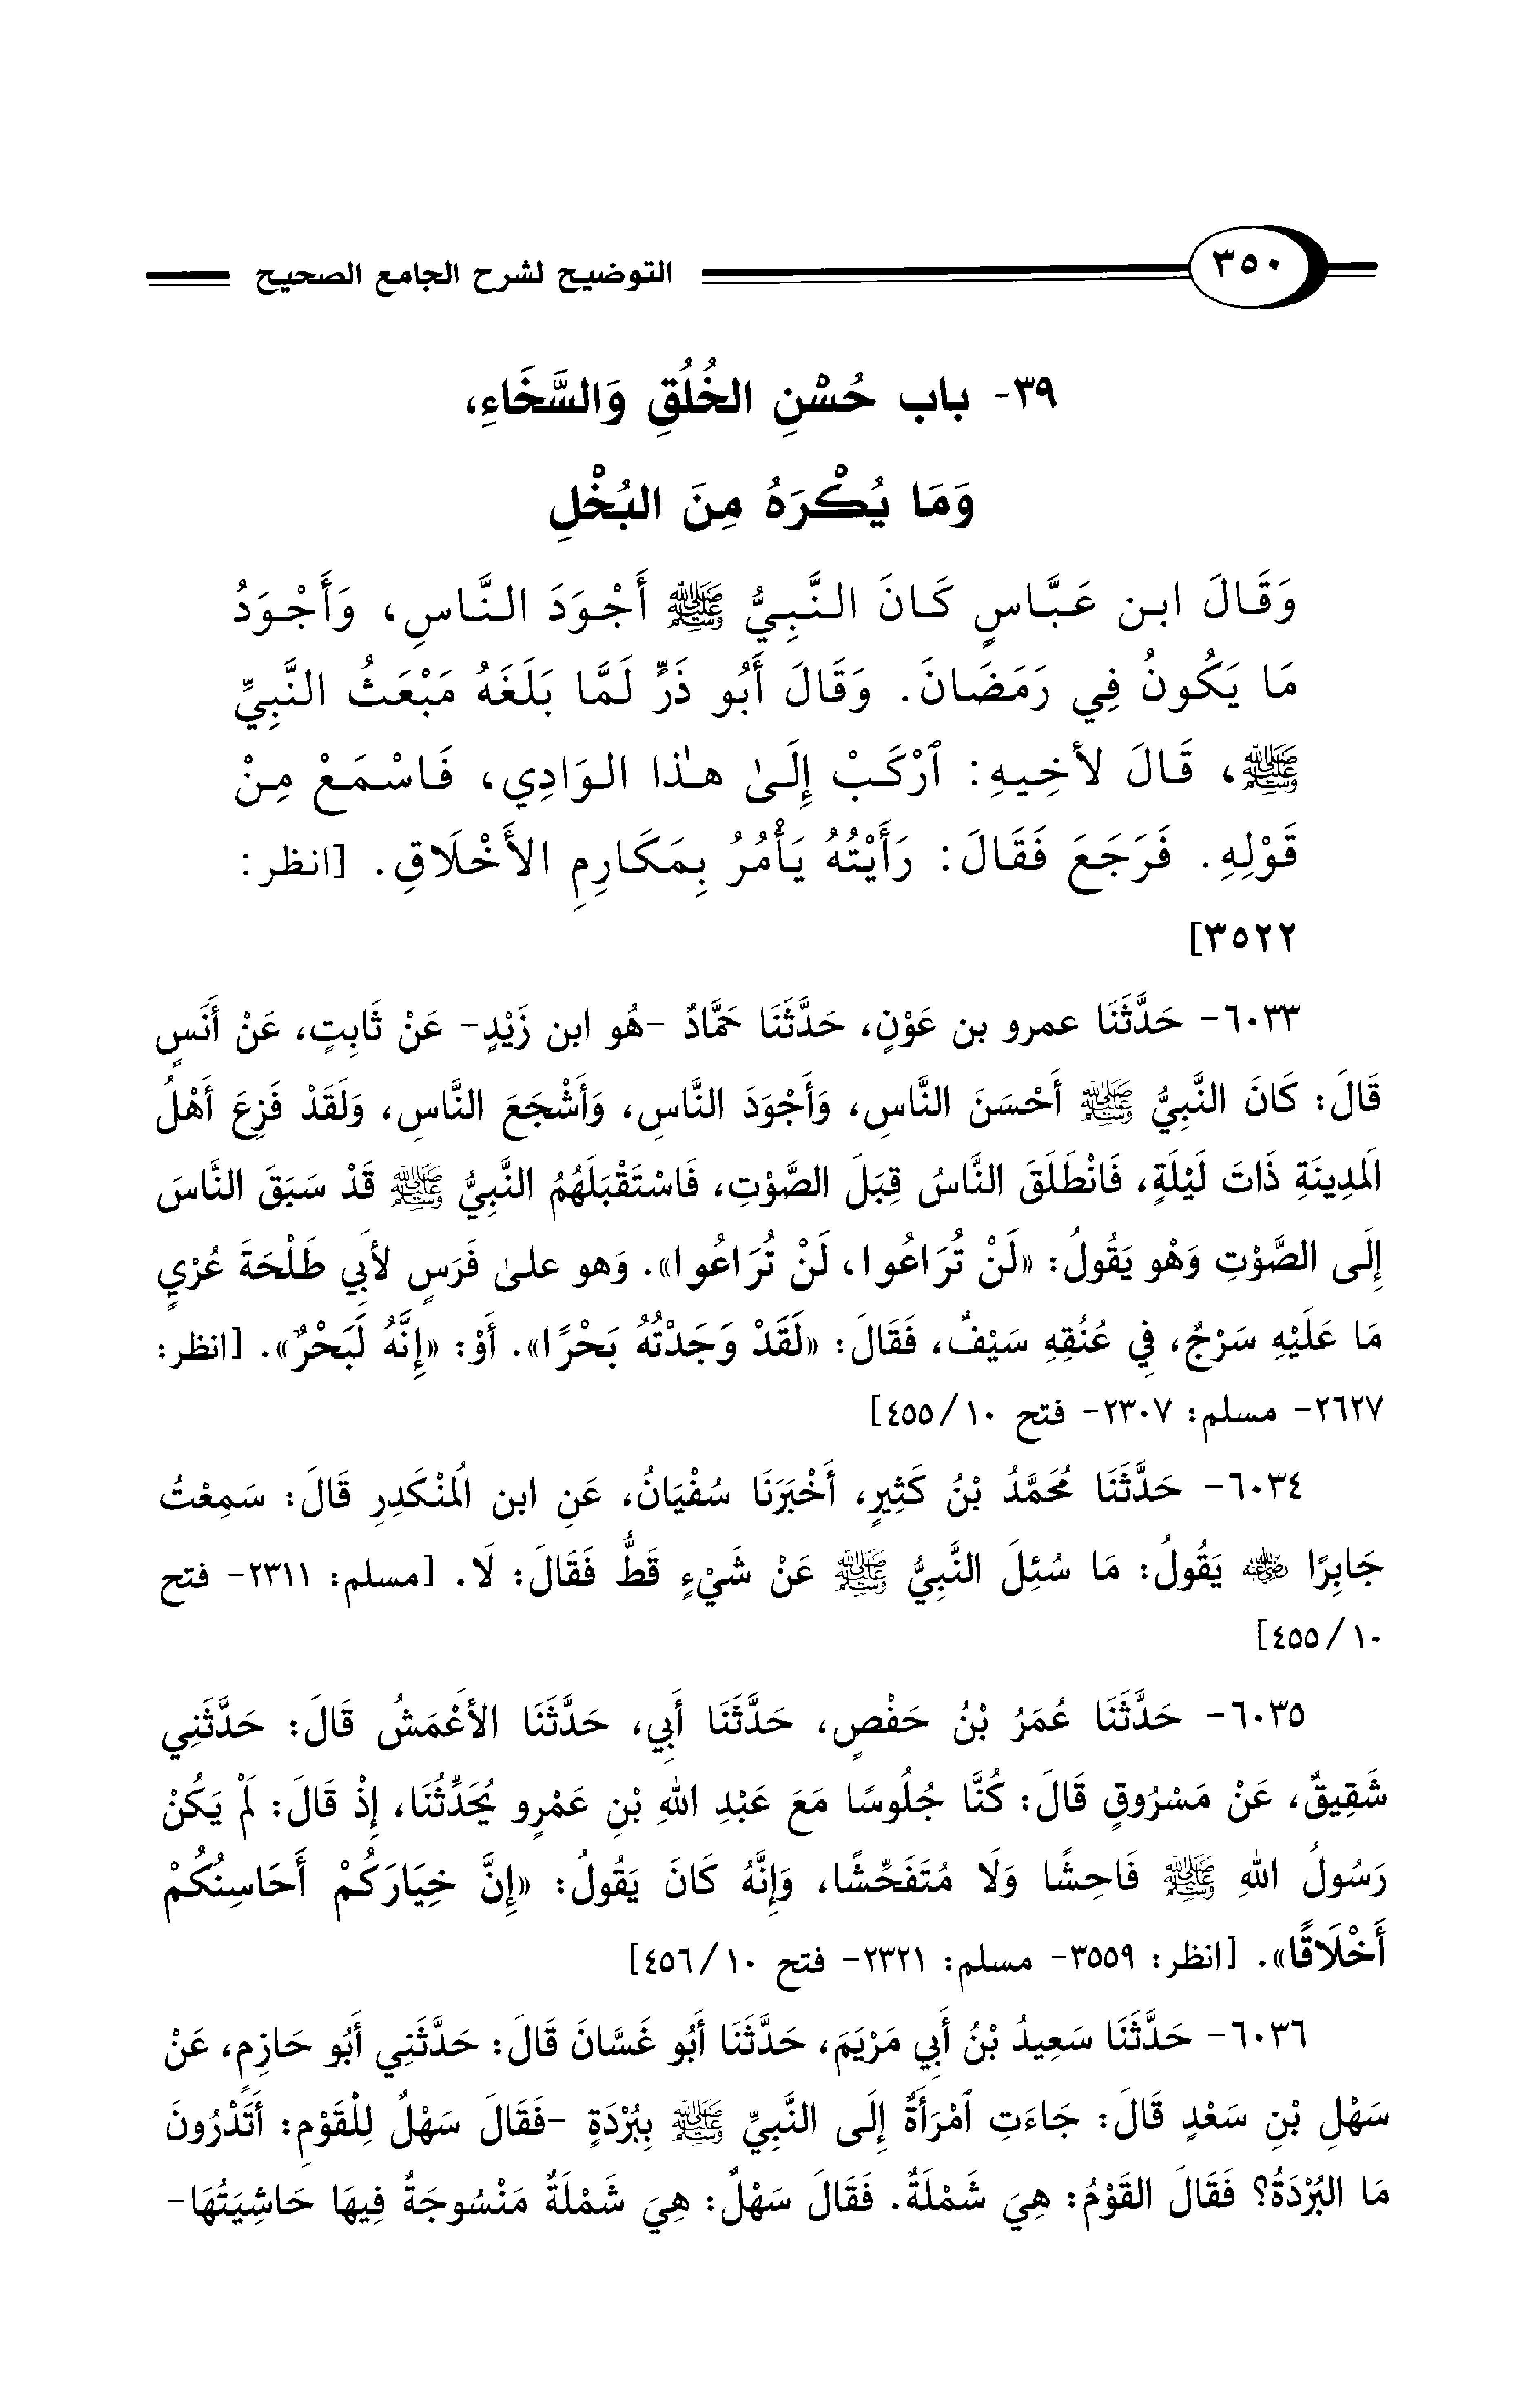 ٣٥٠
التوضيح لشرح الجامع الصحيح
٣٩- باب حُسْنِ الخُلُقِ وَالسَّخَاءِ،
وَمَا يُكْرَهُ مِنَ البُخْلِ
وَقَالَ ابن عَبَّاسٍ كَانَ النَّبِيُّ ﷺ أَجْوَدَ النَّاسِ، وَأَجْوَدُ
مَا يَكُونُ فِي رَمَضَانَ. وَقَالَ أَبُو ذَرٍّ لَمَّا بَلَغَهُ مَبْعَثُ النَّبِيِّ
ﷺ، قَالَ لأَخِيهِ: ٱرْكَبْ إِلَىٰ هٰذا الوَادِي، فَاسْمَعْ مِنْ
قَوْلِهِ. فَرَجَعَ فَقَالَ: رَأَيْتُهُ يَأْمُرُ بِمَكَارِمِ الأَخْلَاقِ. [انظر:
٣٥٢٢]
٦٠٣٣- حَدَّثَنَا عمرو بن عَوْنٍ، حَدَّثَنَا حَمَّادٌ -هُو ابن زَيْدٍ- عَنْ ثَابِتٍ، عَنْ أَنَسٍ
قَالَ: كَانَ النَّبِيُّ ﷺ أَحْسَنَ النَّاسِ، وَأَجْوَدَ النَّاسِ، وَأَشْجَعَ النَّاسِ، وَلَقَدْ فَزِعَ أَهْلُ
الَمدِينَةِ ذَاتَ لَيْلَةٍ، فَانْطَلَقَ النَّاسُ قِبَلَ الصَّوْتِ، فَاسْتَقْبَلَهُمُ النَّبِيُّ ﷺ قَدْ سَبَقَ النَّاسَ
إِلَى الصَّوْتِ وَهْو يَقُولُ: «لَنْ تُرَاعُوا، لَنْ تُرَاعُوا». وَهو علىٰ فَرَسٍ لأَبِي طَلْحَةَ عُرْيٍ
مَا عَلَيْهِ سَرْجٌ، فِي عُنُقِهِ سَيْفٌ، فَقَالَ: «لَقَدْ وَجَدْتُهُ بَحْرًا». أَوْ: «إِنَّهُ لَبَحْرٌ». [انظر:
٢٦٢٧- مسلم: ٢٣٠٧- فتح ١٠/ ٤٥٥]
٦٠٣٤- حَدَّثَنَا مُحَمَّدُ بْنُ كَثِيرٍ، أَخْبَرَنَا سُفْيَانُ، عَنِ ابن الُمنْكَدِرِ قَالَ: سَمِعْتُ
جَابِرًا رضي الله عنه يَقُولُ: مَا سُئِلَ النَّبِيُّ ﷺ عَنْ شَيْءٍ قَطُّ فَقَالَ: لَا. [مسلم: ٢٣١١- فتح
١٠/ ٤٥٥]
٦٠٣٥- حَدَّثَنَا عُمَرُ بْنُ حَفْصٍ، حَدَّثَنَا أَبِي، حَدَّثَنَا الأَعْمَشُ قَالَ: حَدَّثَنِي
شَقِيقٌ، عَنْ مَسْرُوقٍ قَالَ: كُنَّا جُلُوسًا مَعَ عَبْدِ اللهِ بْنِ عَمْرٍو يُحَدِّثُنَا، إِذْ قَالَ: لَمْ يَكُنْ
رَسُولُ اللهِ ﷺ فَاحِشًا وَلَا مُتَفَحِّشًا، وَإِنَّهُ كَانَ يَقُولُ: «إِنَّ خِيَارَكُمْ أَحَاسِنُكُمْ
أَخْلَاقًا». [انظر: ٣٥٥٩- مسلم: ٢٣٢١- فتح ١٠/ ٤٥٦]
٦٠٣٦- حَدَّثَنَا سَعِيدُ بْنُ أَبِي مَرْيَمَ، حَدَّثَنَا أَبُو غَسَّانَ قَالَ: حَدَّثَنِي أَبُو حَازِمٍ، عَنْ
سَهْلِ بْنِ سَعْدٍ قَالَ: جَاءَتِ ٱمْرَأَةٌ إِلَى النَّبِيِّ ﷺ بِبُرْدَةٍ -فَقَالَ سَهْلٌ لِلْقَوْمِ: أَتَدْرُونَ
مَا البُرْدَةُ؟ فَقَالَ القَوْمُ: هِيَ شَمْلَةٌ. فَقَالَ سَهْلٌ: هِيَ شَمْلَةٌ مَنْسُوجَةٌ فِيهَا حَاشِيَتُهَا-